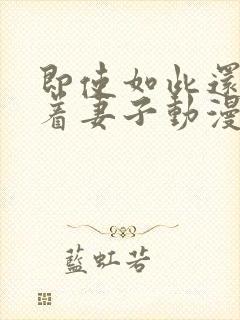 即使如此還
着妻子動漫
藍虹若